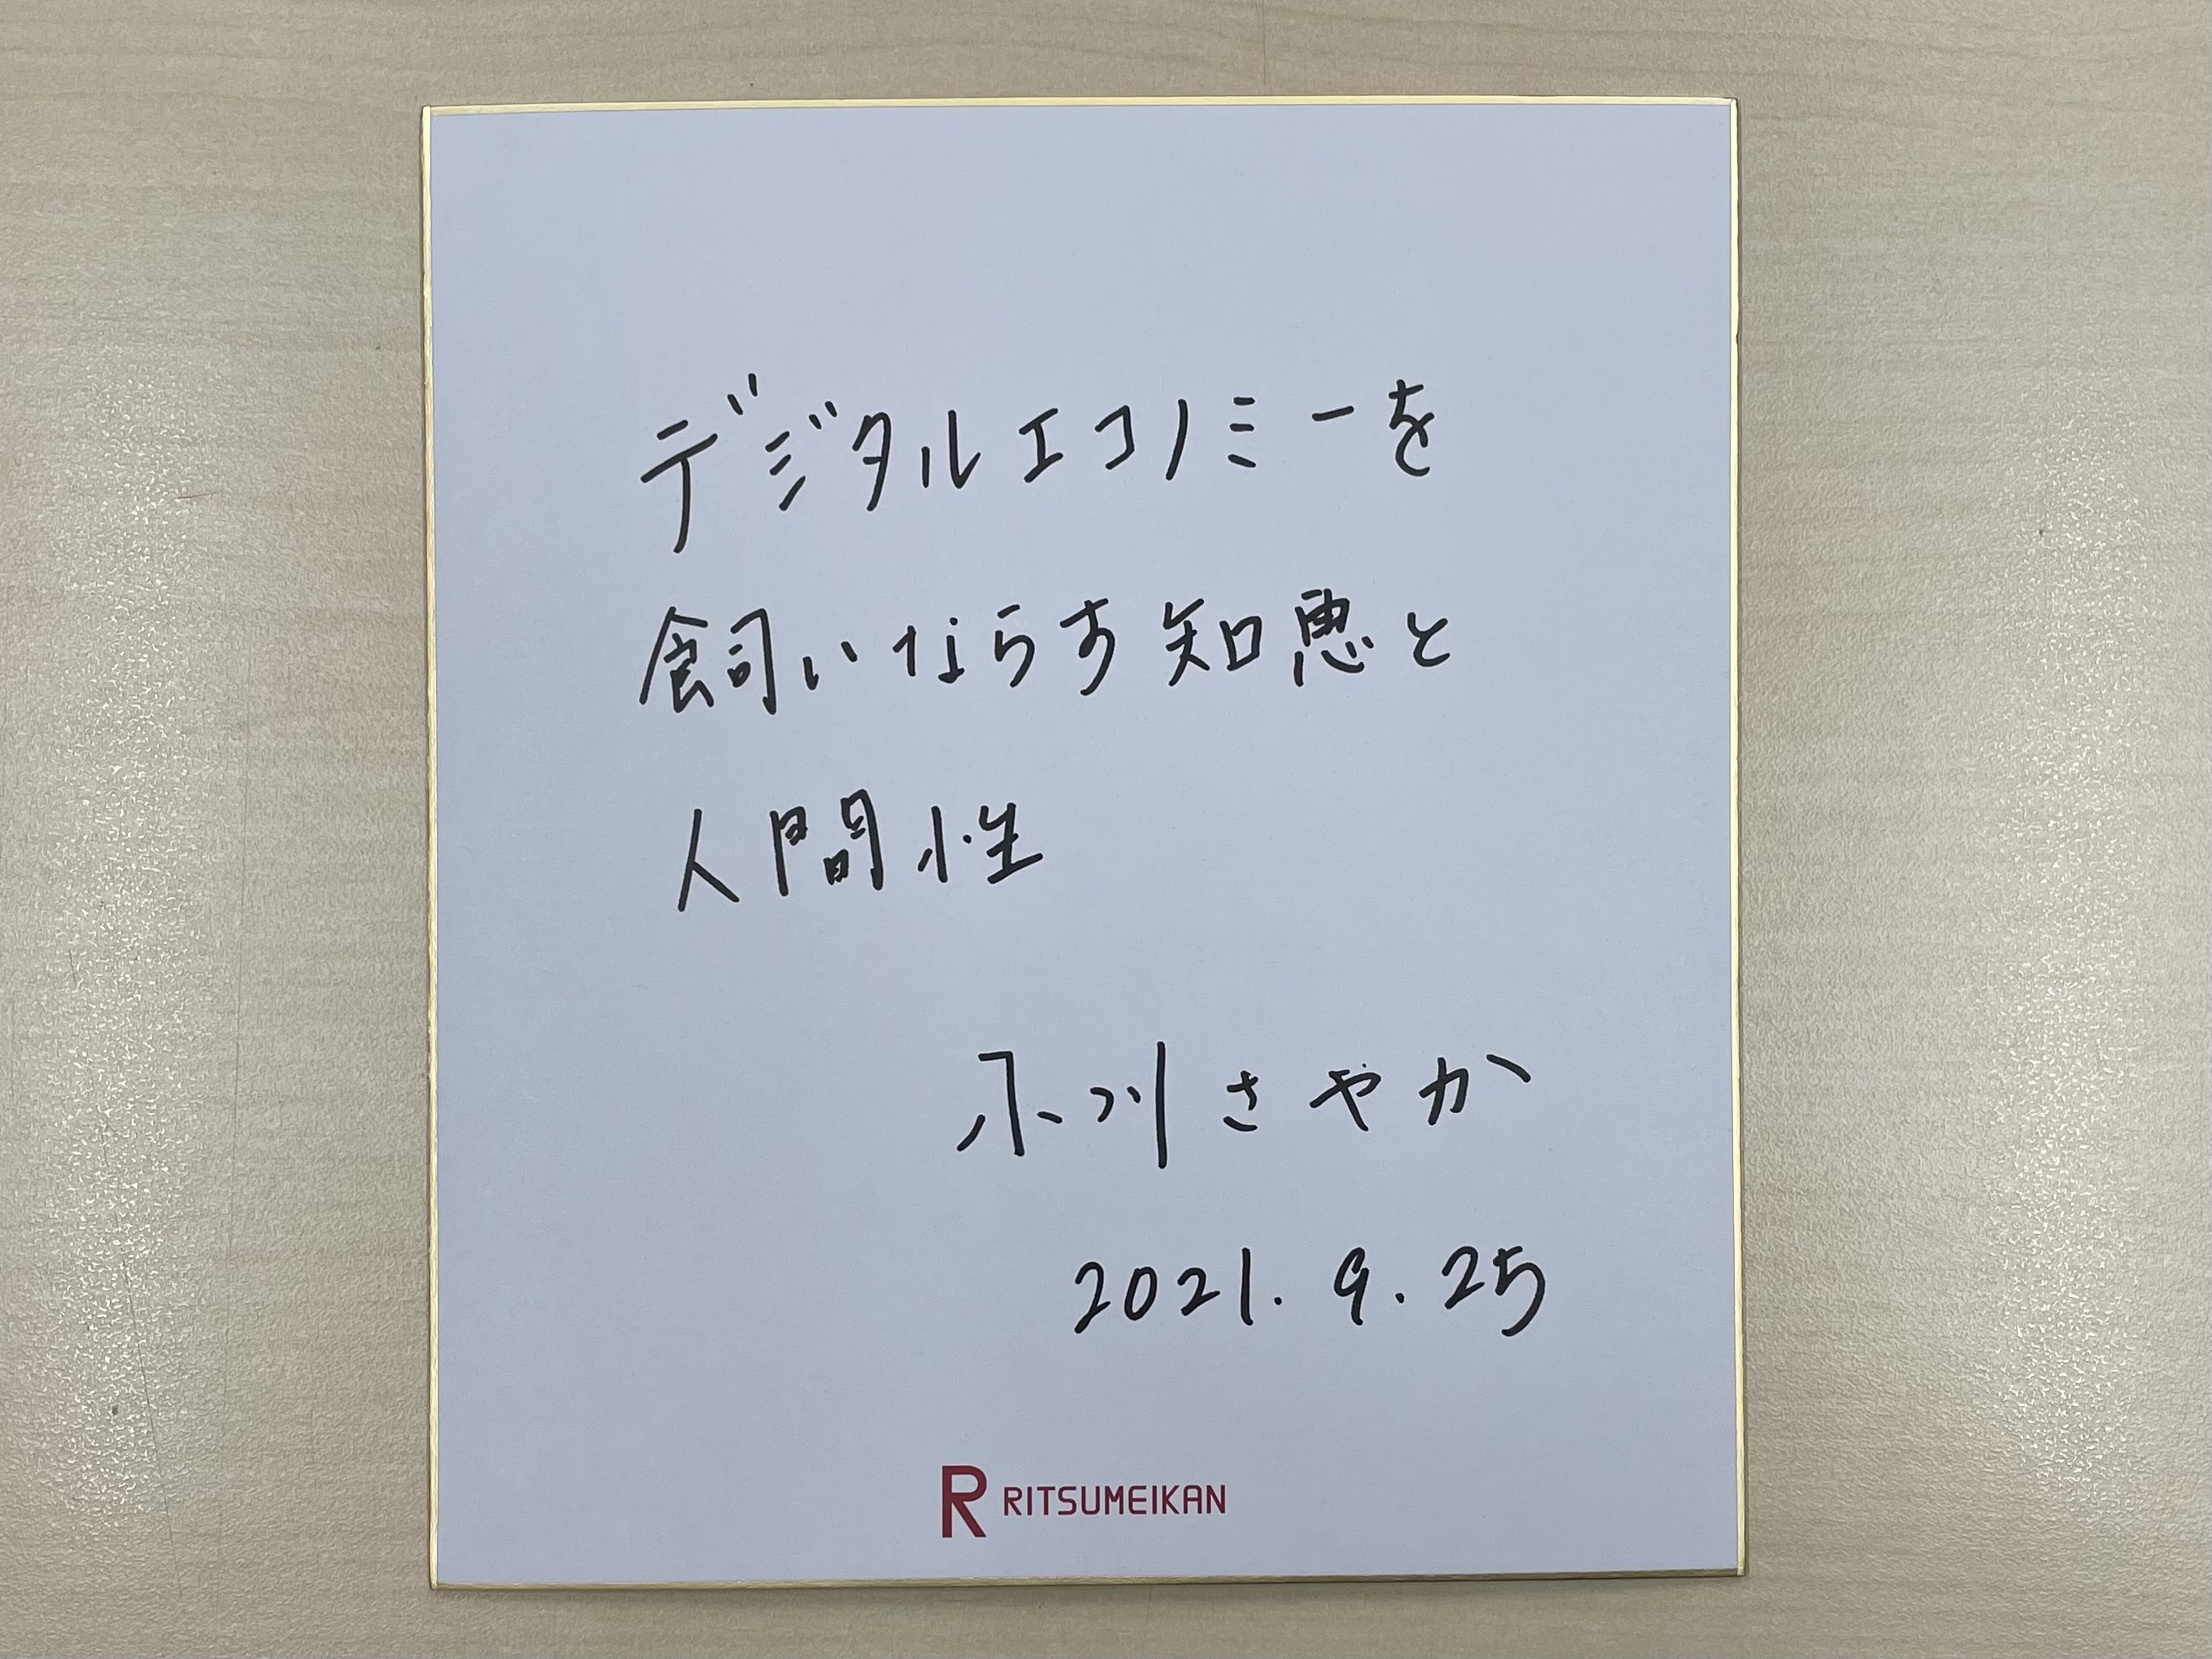 デジタルエコノミーを
飼いならす知恵と
人間性
小川さやか
2021. 9. 25
R RITSUMEIKAN